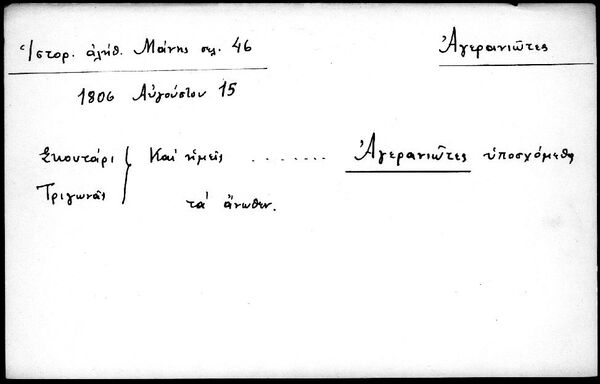 Ἱστορ. ἀλήθ. Μάνης σελ. 46
Ἀγερανιῶτες
1806 Αὐγούστου 15
Σκουτάρι
Τριγωνᾶς
Καί ἡμεῖς ....... Ἀγερανιῶτες ὑποσχόμεθα
τά ἄνωθεν.